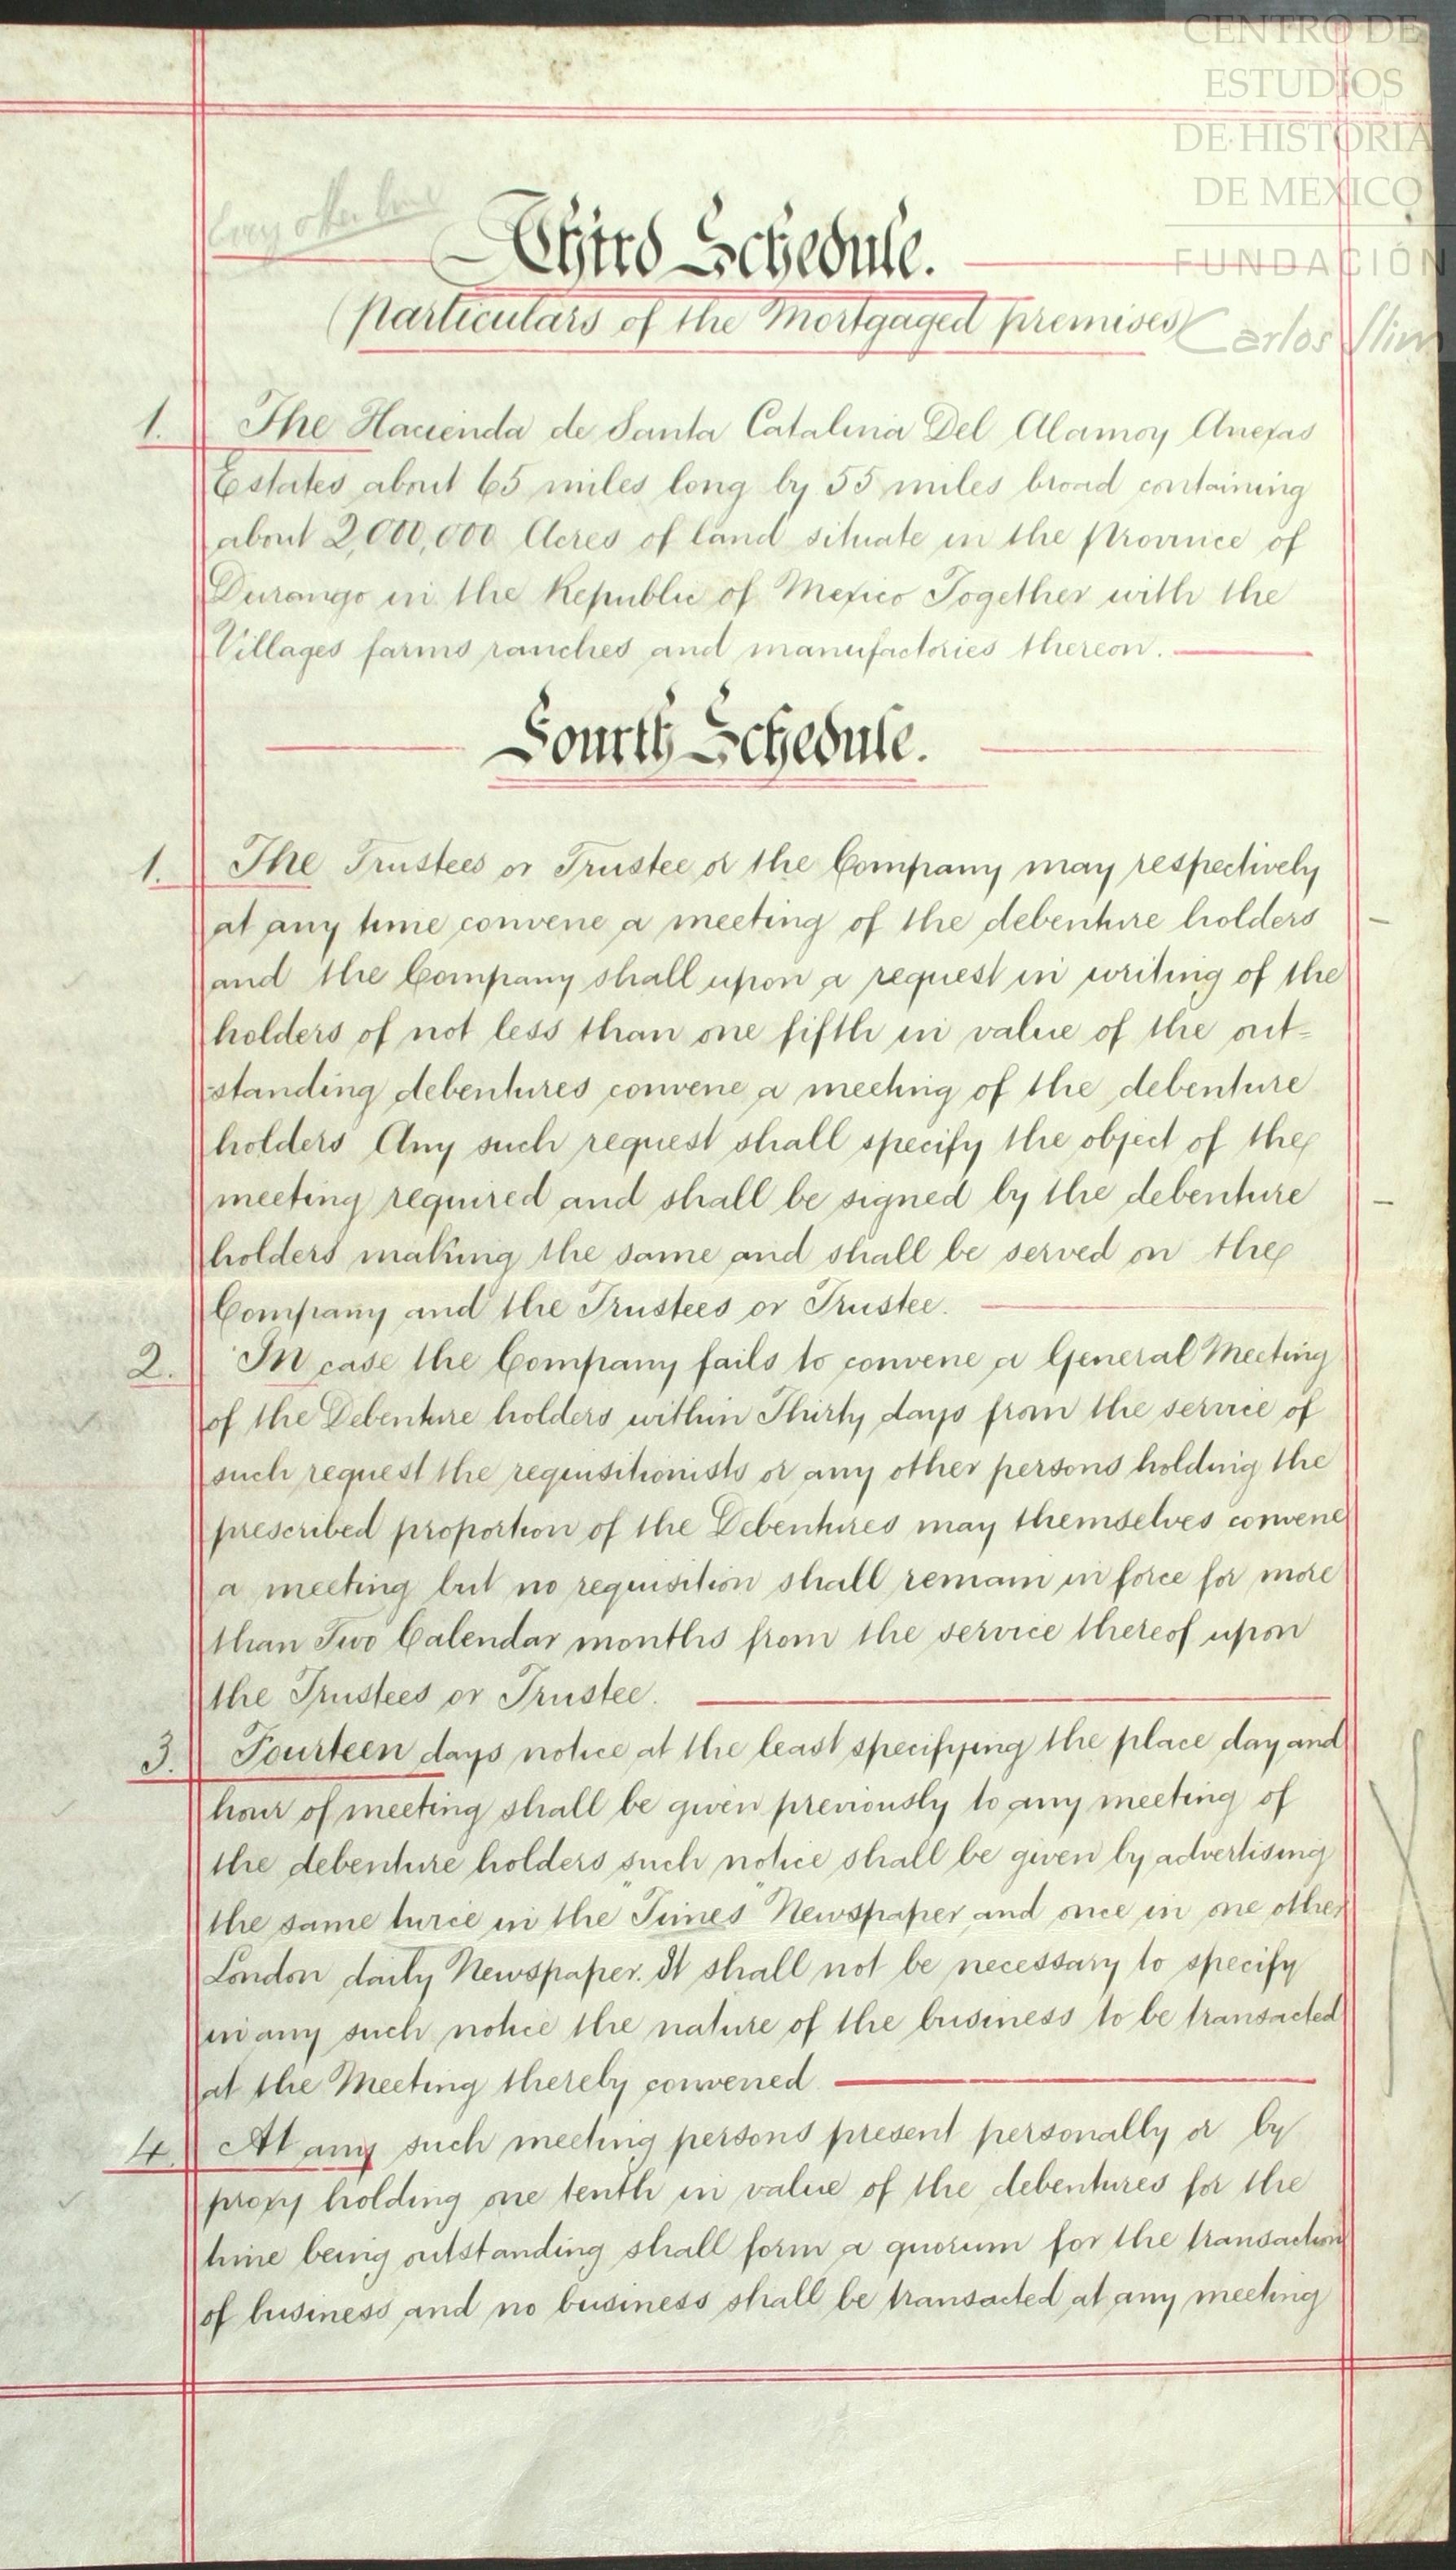 CENTRO DE
ESTUDIOS
DE HISTORIA
DE MEXICO
FUNDACIÓN
Carlos Slim
Third Schedule.
(particulars of the Mortgaged premises)
1. The Hacienda de Santa Catalina Del Alamoy Anexas
Estates about 65 miles long by 55 miles broad containing
about 2,000,000 Acres of land situate in the Province of
Durango in the Republic of Mexico Together with the
Villages farms ranches and manufactories thereon.
Fourth Schedule.
1. The Trustees or Trustee or the Company may respectively
at any time convene a meeting of the debenture holders
and the Company shall upon a request in writing of the
holders of not less than one fifth in value of the out=
=standing debentures convene a meeting of the debenture
holders Any such request shall specify the object of the
meeting required and shall be signed by the debenture
holders making the same and shall be served on the
Company and the Trustees or Trustee.
2. In case the Company fails to convene a General Meeting
of the Debenture holders within Thirty days from the service of
such request the requisitionists or any other persons holding the
prescribed proportion of the Debentures may themselves convene
a meeting but no requisition shall remain in force for more
than Two Calendar months from the service thereof upon
the Trustees or Trustee.
3. Fourteen days notice at the least specifying the place day and
hour of meeting shall be given previously to any meeting of
the debenture holders such notice shall be given by advertising
the same twice in the "Times" Newspaper and once in one other
London daily Newspaper. It shall not be necessary to specify
in any such notice the nature of the business to be transacted
at the Meeting thereby convened
4. At any such meeting persons present personally or by
proxy holding one tenth in value of the debentures for the
time being outstanding shall form a quorum for the transaction
of business and no business shall be transacted at any meeting